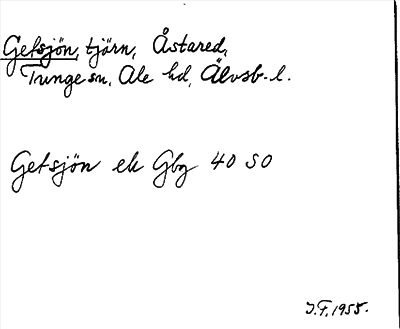 Getsjön, tjärn, Åstared,
Tunge sn, Ale hd, Älvsb. l.
Getsjön ek Gbg 40 SO
J.F. 1955.